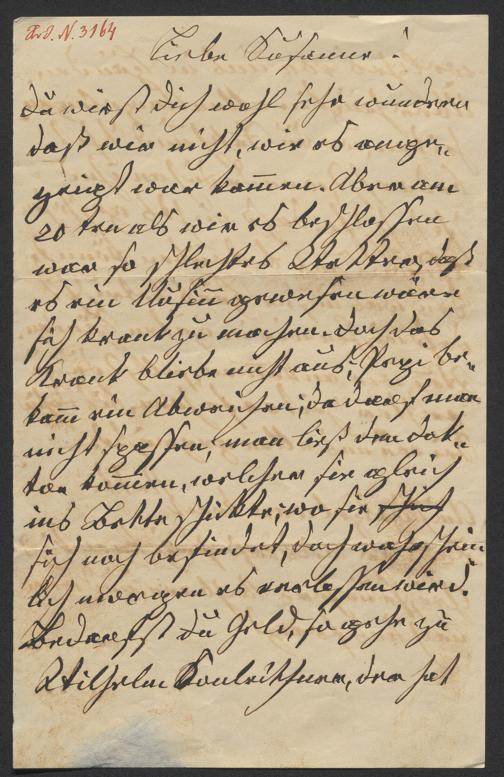 Fr. I. N. 3164
Liebe Susanne!
Du wirst Dich wohl sehr wundern
daß wir nicht, wie es ange-
zeigt war kom̄en. Aber am
20ten als wir es beschlossen
war so schlechtes Wetter, daß
es ein Unsin̄ gewesen wäre
sich krank zu machen. Doch das
Krank bliebe nicht aus; Pepi be-
kam̄ ein Abweichen; da darf man
nicht spassen, man ließ den Dok-
tor kom̄en, welcher sie gleich
ins Bette schickte; wo sie
sich noch befindet, doch wahrschein
lich morgen es verlassen wird.
Bedarfst Du Geld, so gehe zu
Wilhelm der hat